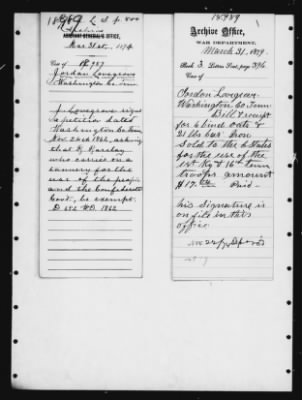 18989
ADJUTANT-GENERAL'S OFFICE,
Mar 31st, 1879
Case of 18,989
Jordan Lovegrove
Washington Co. Tenn
J. Lovegrove signs
a petition dated
Washington Co Tenn
Nov 22nd 1862, asking
that Barclay
who carries on a
tannery for the
use of the people
and the Confederate
Govt, be exempt.
D 652 WD. 1862
18989
Archive Office,
WAR DEPARTMENT,
March 31, 1879.
Book 3
Case of
Jordan Lovegrove
Washington Co Tenn
Bill & receipt
for 6 bind oats &
21 lbs bar Iron
Sold to the C States
for the use of the
1st Ky & 16th Tenn
troops amount
$17. Paid -
his signature is
on file in this
office